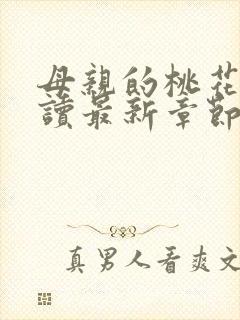 母親的桃花
讀最新章節
真男人看爽文